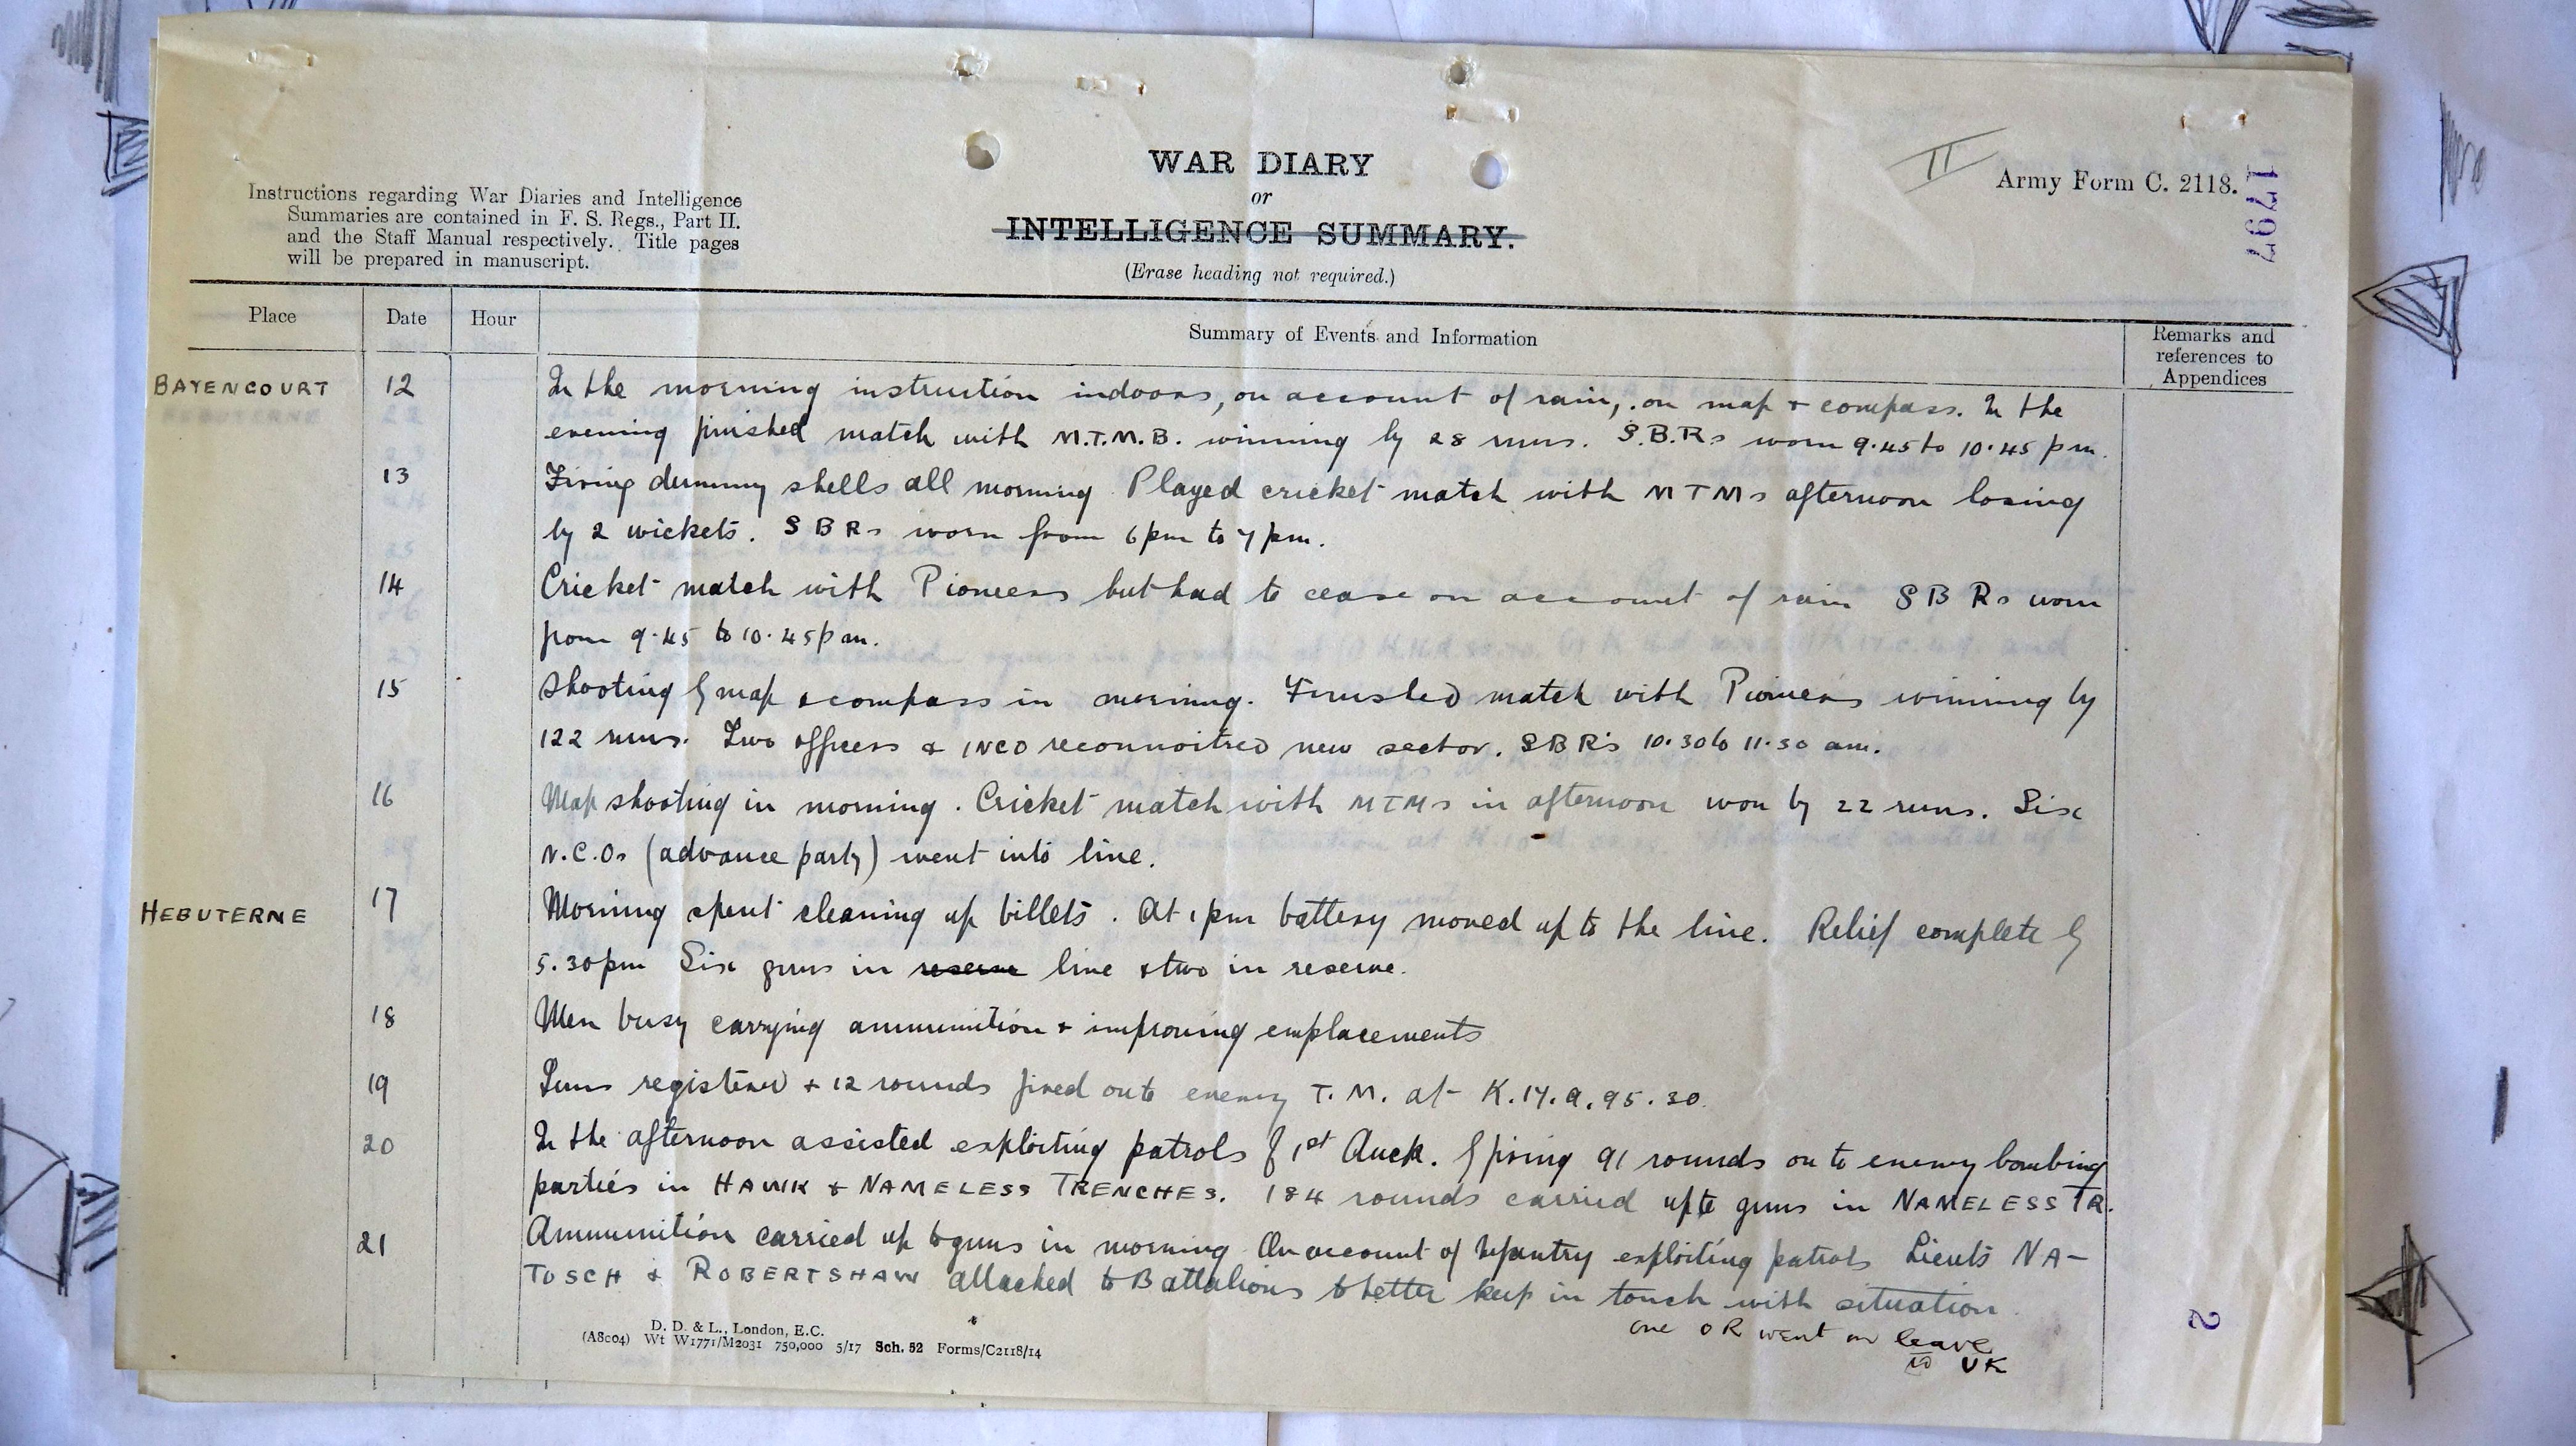 WAR DIARY
or
INTELLIGENCE SUMMARY.
(Erase heading not required.)
Instructions regarding War Diaries and Intelligence
Summaries are contained in F. S. Regs., Part II.
and the Staff Manual respectively. Title pages
will be prepared in manuscript.
II
Army Form C. 2118.
1797
Place Date Hour Summary of Events and Information Remarks and
references to
Appendices
BAYENCOURT 12 In the morning instruction indoors, on account of rain, on map + compass. In the
evening finished match with M.T.M.B. winning by 28 runs. S.B.Rs worn 9.45 to 10.45 pm.
13 Firing dummy shells all morning. Played cricket match with MTMs afternoon losing
by 2 wickets. SBRs worn from 6pm to 7pm.
14 Cricket match with Pioneers but had to cease on account of rain SBRs worn
from 9.45 to 10.45pm.
15 Shooting by map & compass in morning. Finished match with Pioneers winning by
122 runs. Two officers & 1NCO reconnoitred new sector. SBR's 10.30 to 11.30 am.
16 Map shooting in morning. Cricket match with MTMs in afternoon won by 22 runs. Six
N.C.Os (advance party) went into line.
HEBUTERNE 17 Morning spent cleaning up billets. At 1pm battery moved up to the line. Relief complete by
5.30pm Six guns in reserve line & two in reserve.
18 Men busy carrying ammunition + improving emplacements
19 Guns registered + 12 rounds fired onto enemy T.M. at K.17.a.95.30.
20 In the afternoon assisted exploiting patrols of 1st Auck. by firing 91 rounds on to enemy bombing
parties in HAWK & NAMELESS TRENCHES. 184 rounds carried up to guns in NAMELESS TR.
21 Ammunition carried up to guns in morning. On account of Infantry exploiting patrols Lieuts NA-
TUSCH & ROBERTSHAW attached to Battalions to better keep in touch with situation.
one OR went on leave
to UK
D. D. & L., London, E.C.
(A8c04) Wt W1771/M2031 750,000 5/17 Sch. 52 Forms/C2118/14
2